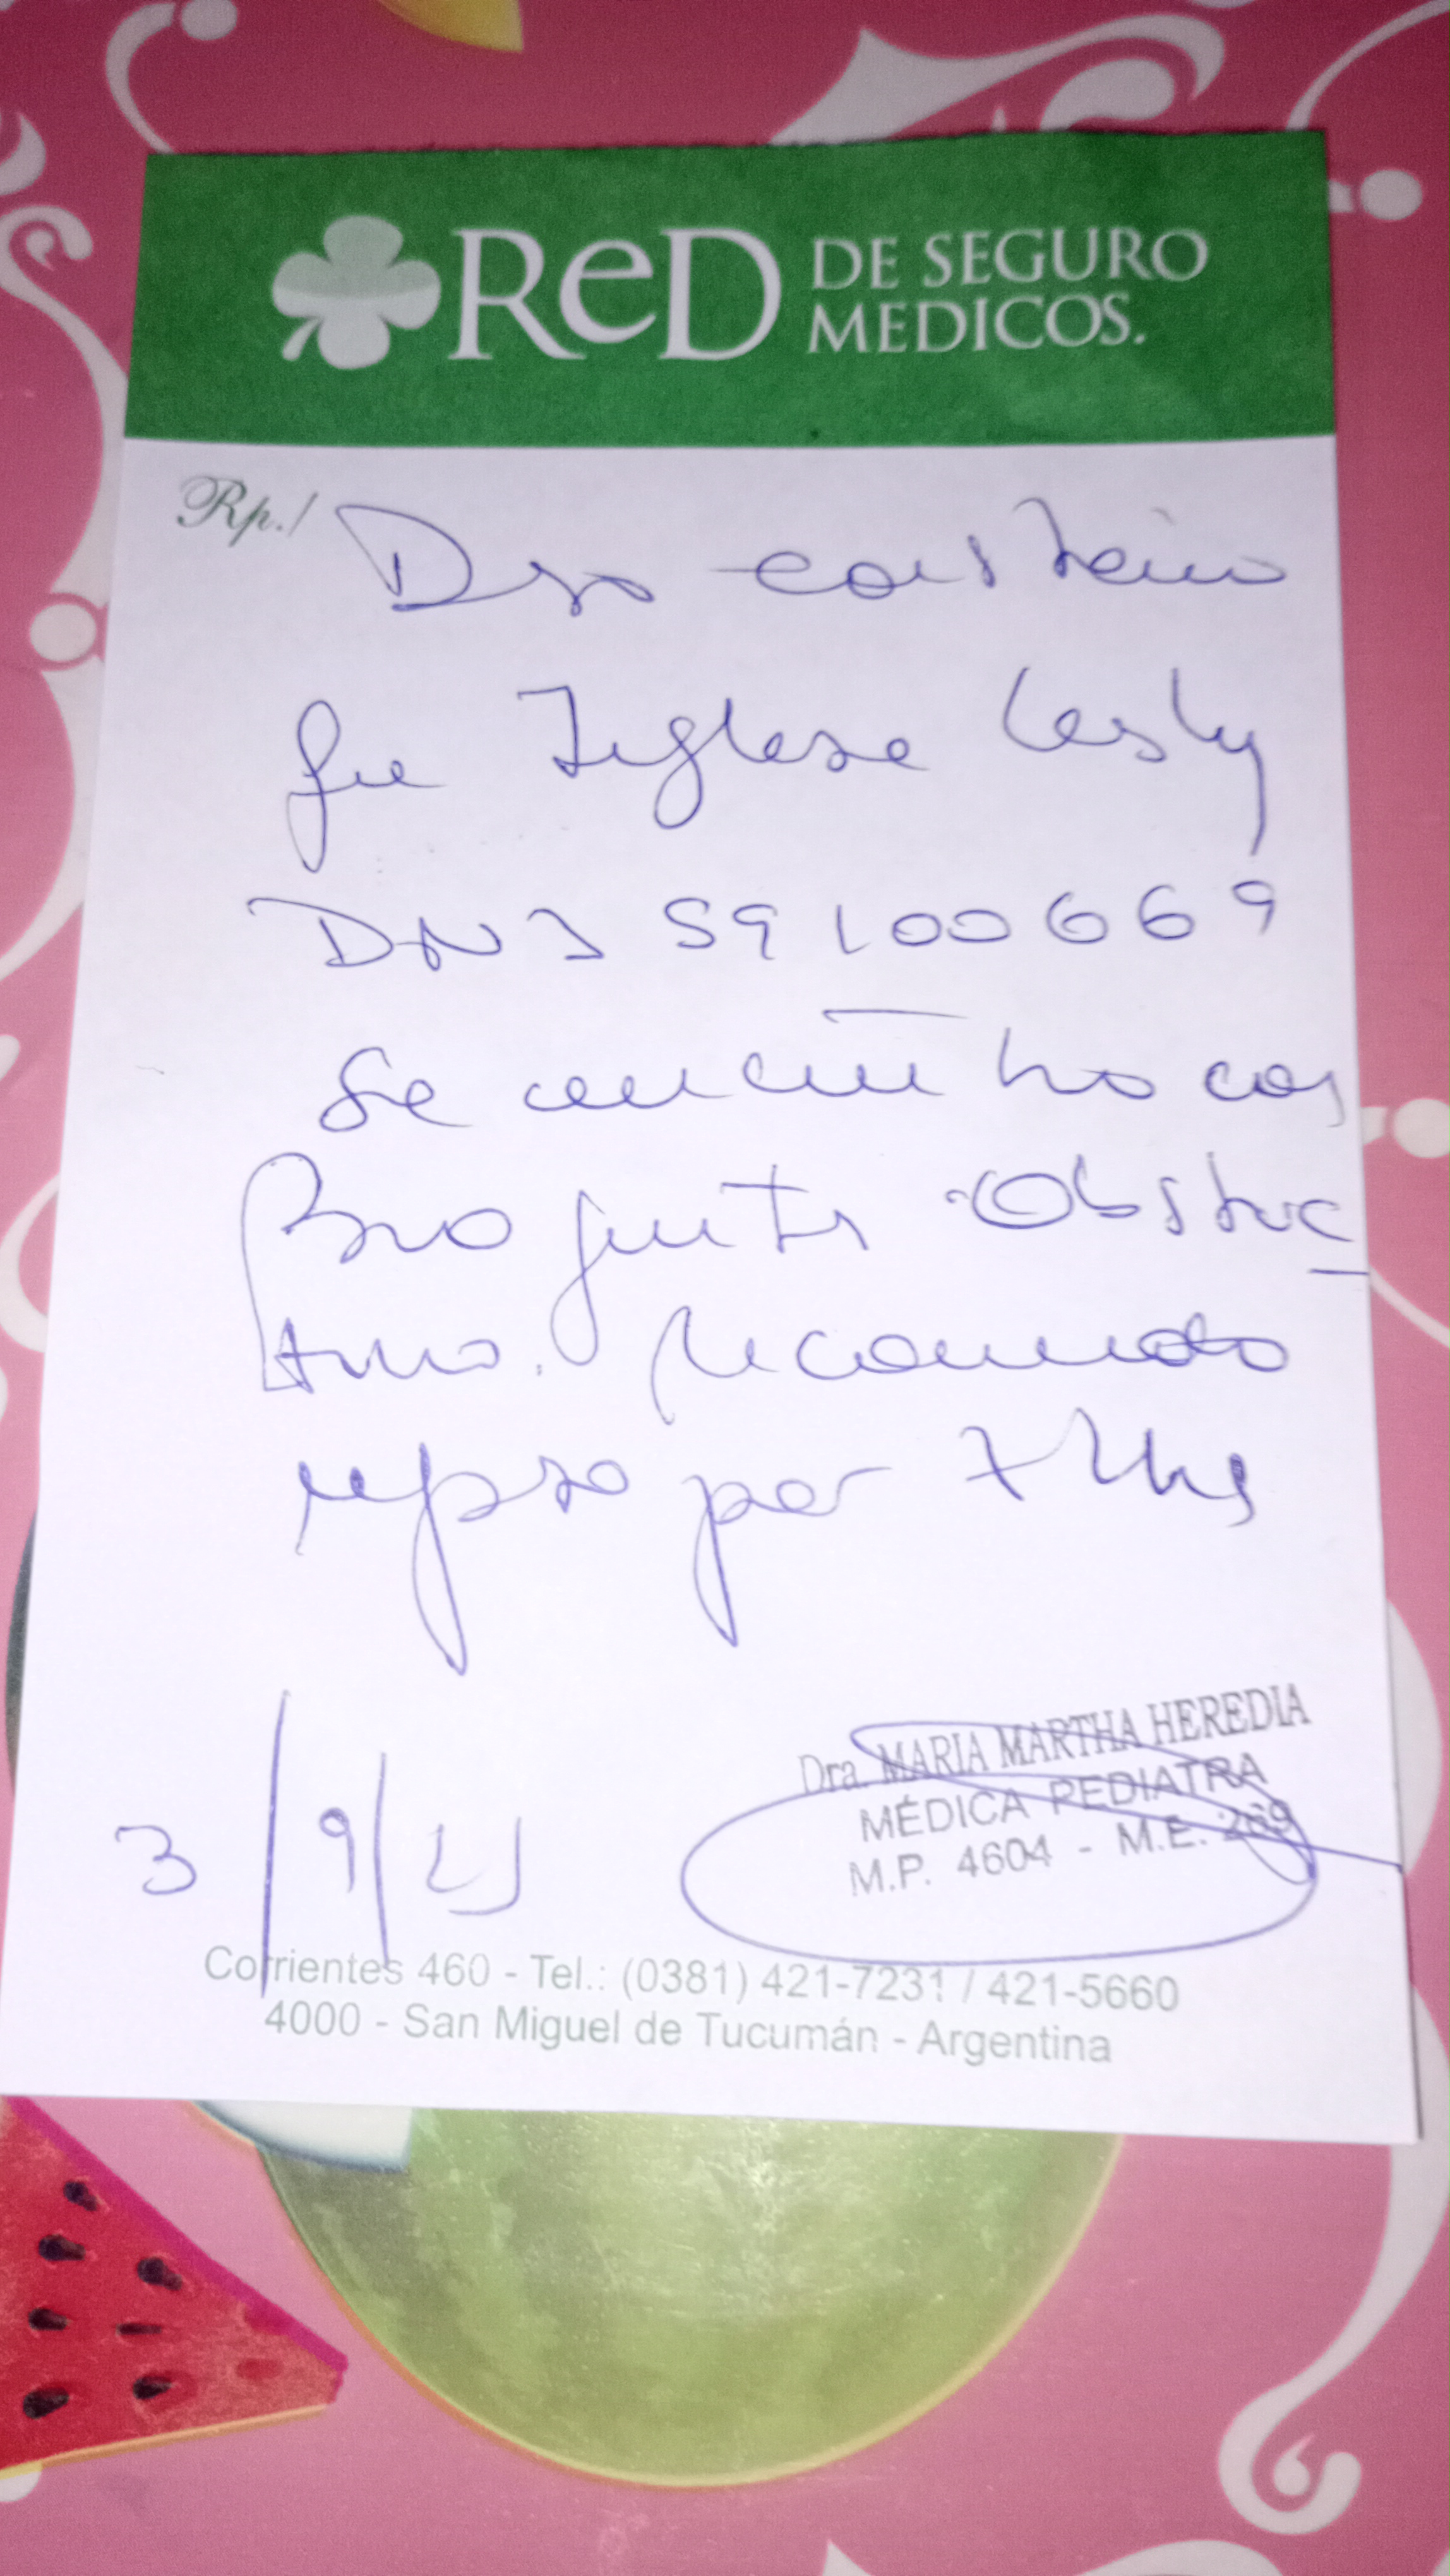 ReD DE SEGURO
MEDICOS.
Rp./ Dejo constancia
que Inglese Lesly
DNI 59100669
se encuentra con
Bronquitis Obstruc
tiva. Recomiendo
reposo por 72hs
3/9/25
Dra. MARIA MARTHA HEREDIA
MÉDICA PEDIATRA
M.P. 4604 - M.E. 269
Corrientes 460 - Tel.: (0381) 421-7231 / 421-5660
4000 - San Miguel de Tucumán - Argentina